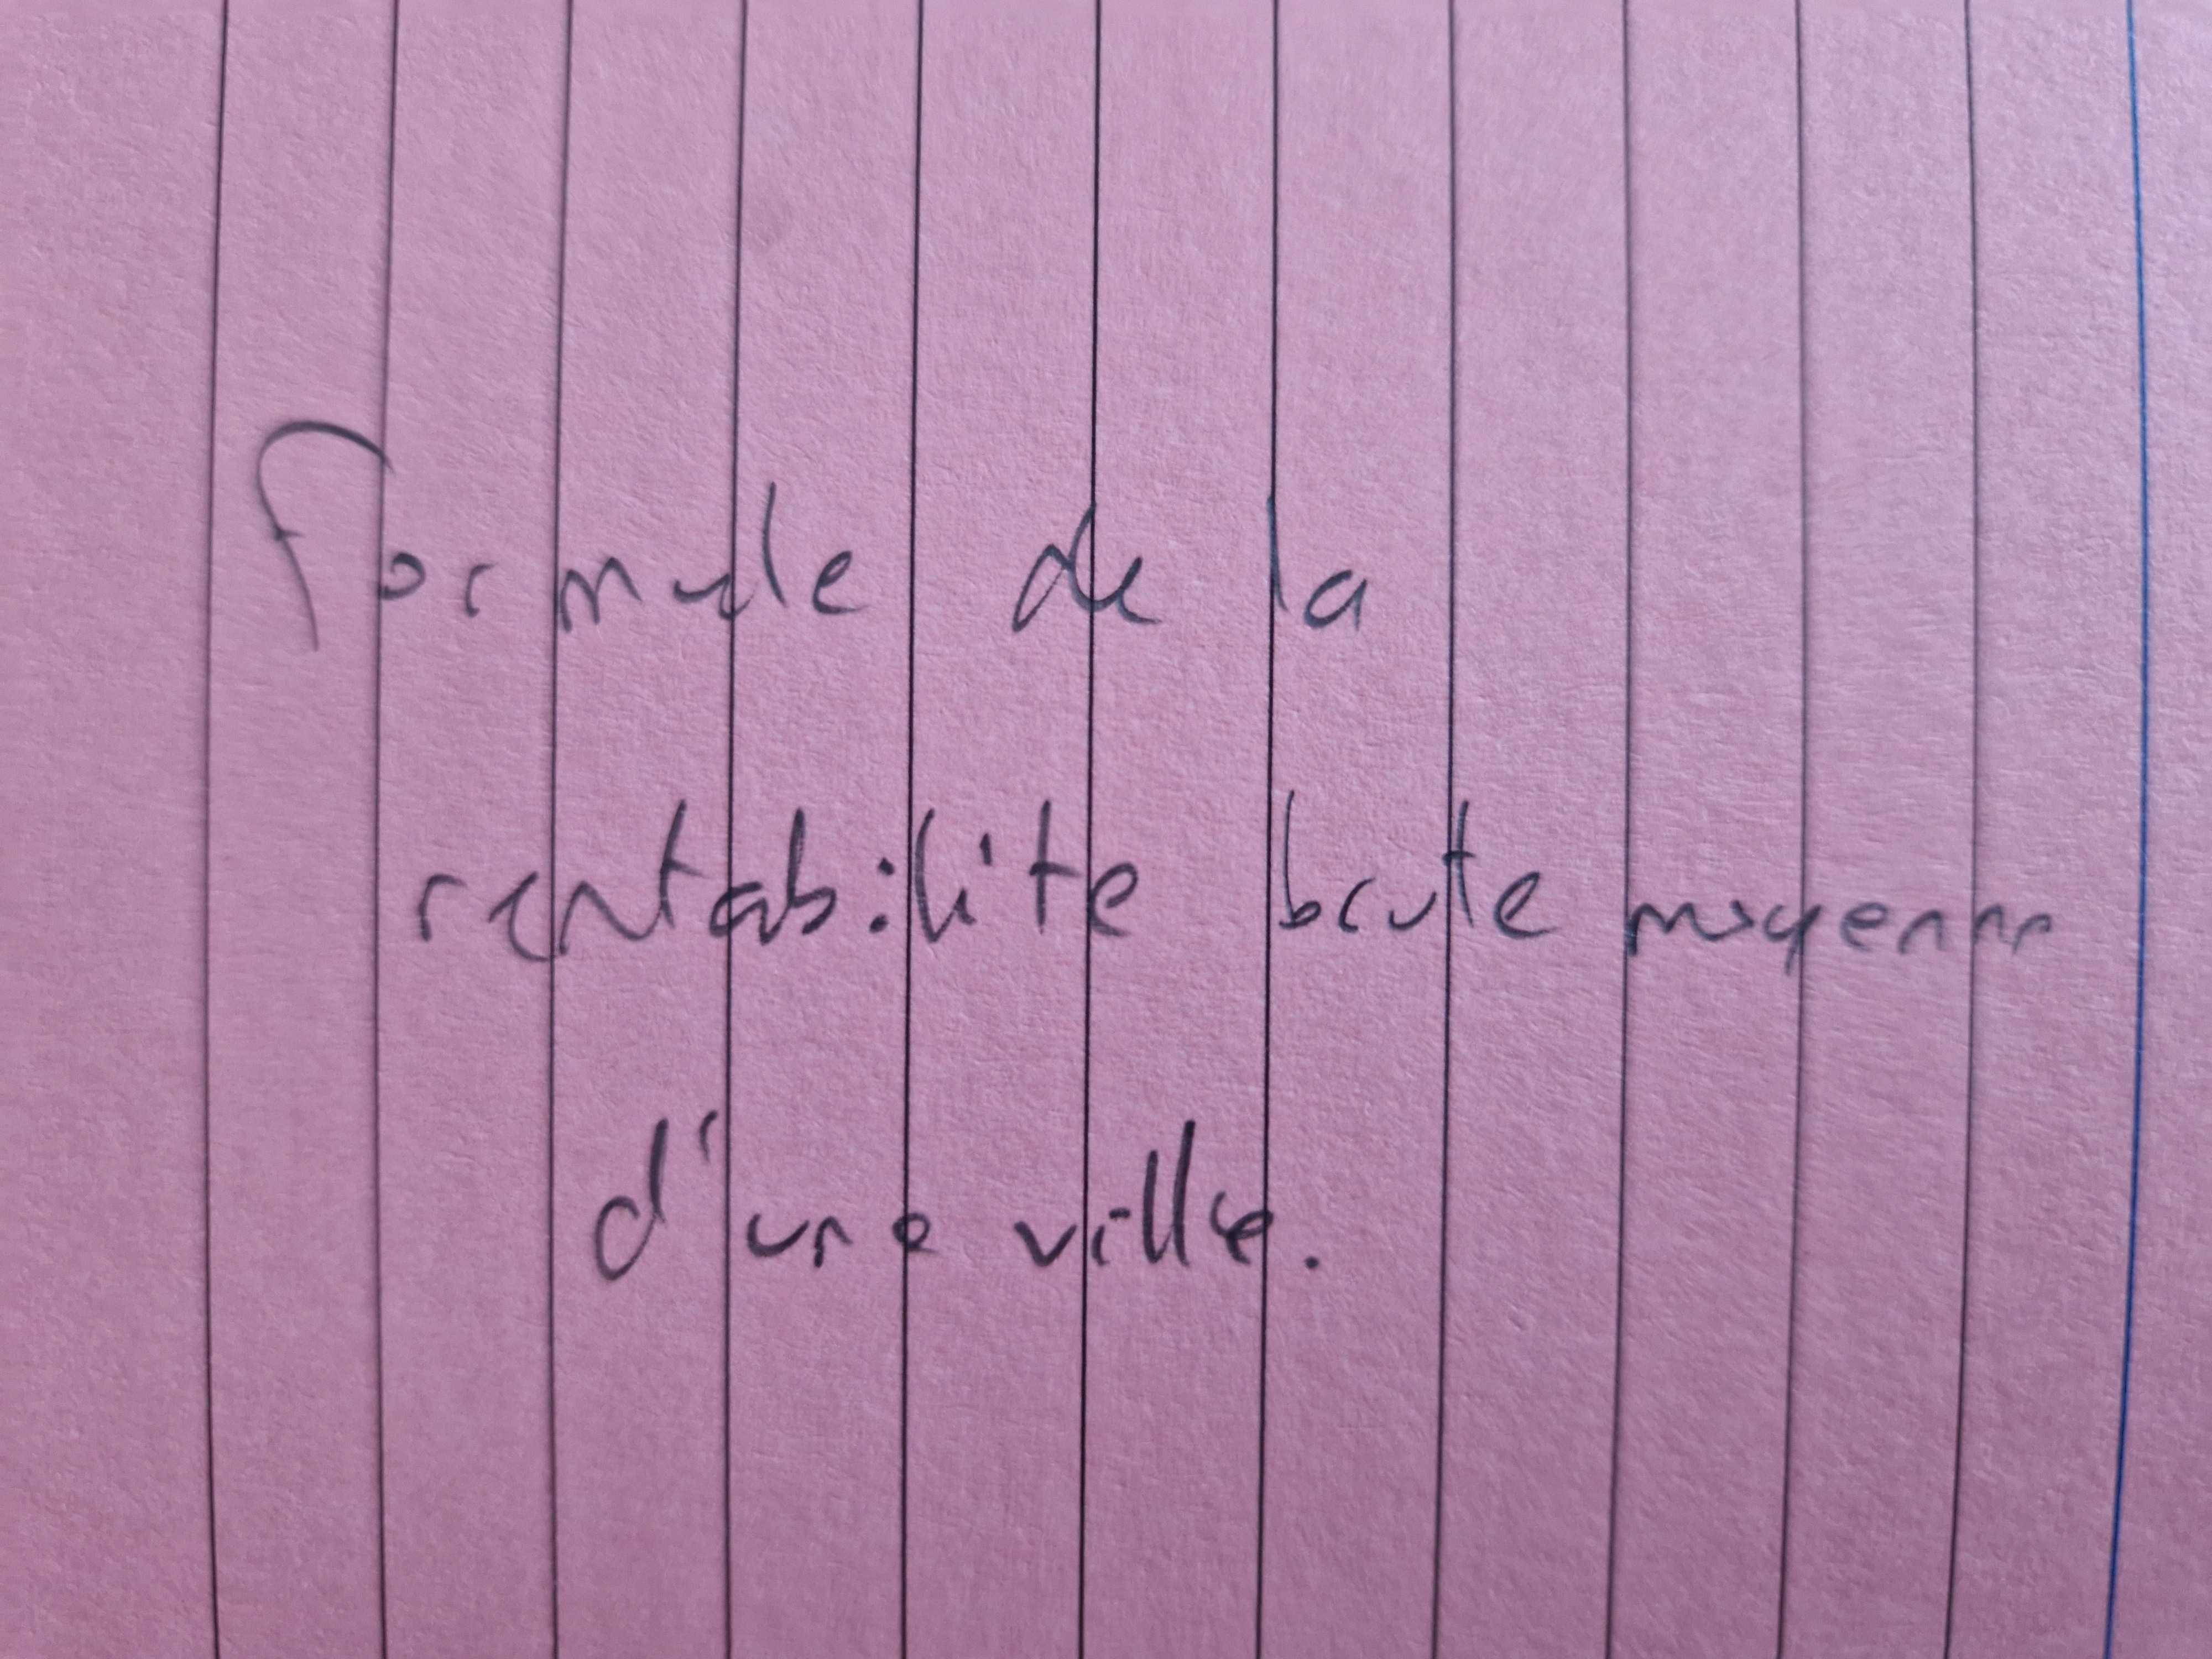 Formule de la
rentabilite brute moyenne
d'une ville.